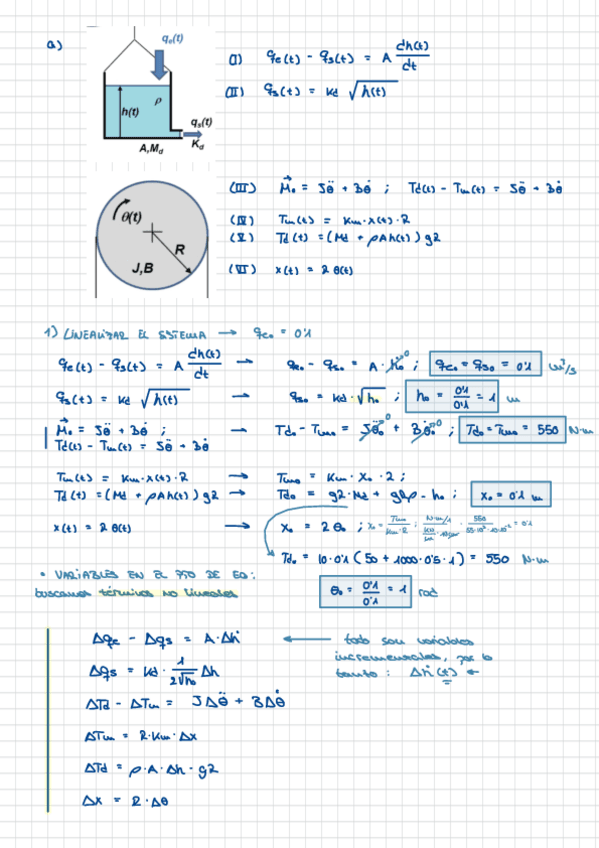 a)
qe(t)
ρ
h(t)
qs(t)
Kd
A,Md
(I) qe(t) - qs(t) = A dh(t)/dt
(II) qs(t) = Kd √h(t)
θ(t)
R
J,B
(III) M⃗o = Jθ̈ + Bθ̇ ; Td(t) - Tm(t) = Jθ̈ + Bθ̇
(IV) Tm(t) = Km·x(t)·R
(V) Td(t) = (Md + ρAh(t)) gR
(VI) x(t) = R θ(t)
1) LINEALIZAR EL SISTEMA → qeo = 0'1
qe(t) - qs(t) = A dh(t)/dt → qeo - qso = A · ḣo⁰ ; qeo = qso = 0'1 m³/s
qs(t) = Kd √h(t) → qso = Kd · √ho ; ho = 0'1/0'1 = 1 m
M⃗o = Jθ̈ + Bθ̇ ;
Td(t) - Tm(t) = Jθ̈ + Bθ̇ → Tdo - Tmo = Jθ̈o⁰ + Bθ̇o⁰ ; Tdo = Tmo = 550 N·m
Tm(t) = Km·x(t)·R → Tmo = Km · Xo · R ;
Td(t) = (Md + ρAh(t)) gR → Tdo = gR · Md + gRρ · ho ; Xo = 0'1 m
x(t) = R θ(t) → Xo = R θo ; Xo = Tmo/Km·R
Tdo = 10·0'1 (50 + 1000·0'5·1) = 550 N·m
• VARIABLES EN EL PTO DE EQ:
buscamos términos no lineales
θo = 0'1/0'1 = 1 rad
Δqe - Δqs = A·Δḣ ← todo son variables
incrementales, por lo
tanto : Δḣ(t) ←
Δqs = Kd · 1/2√ho Δh
ΔTd - ΔTm = JΔθ̈ + BΔθ̇
ΔTm = R·Km·Δx
ΔTd = ρ·A·Δh·gR
Δx = R·Δθ